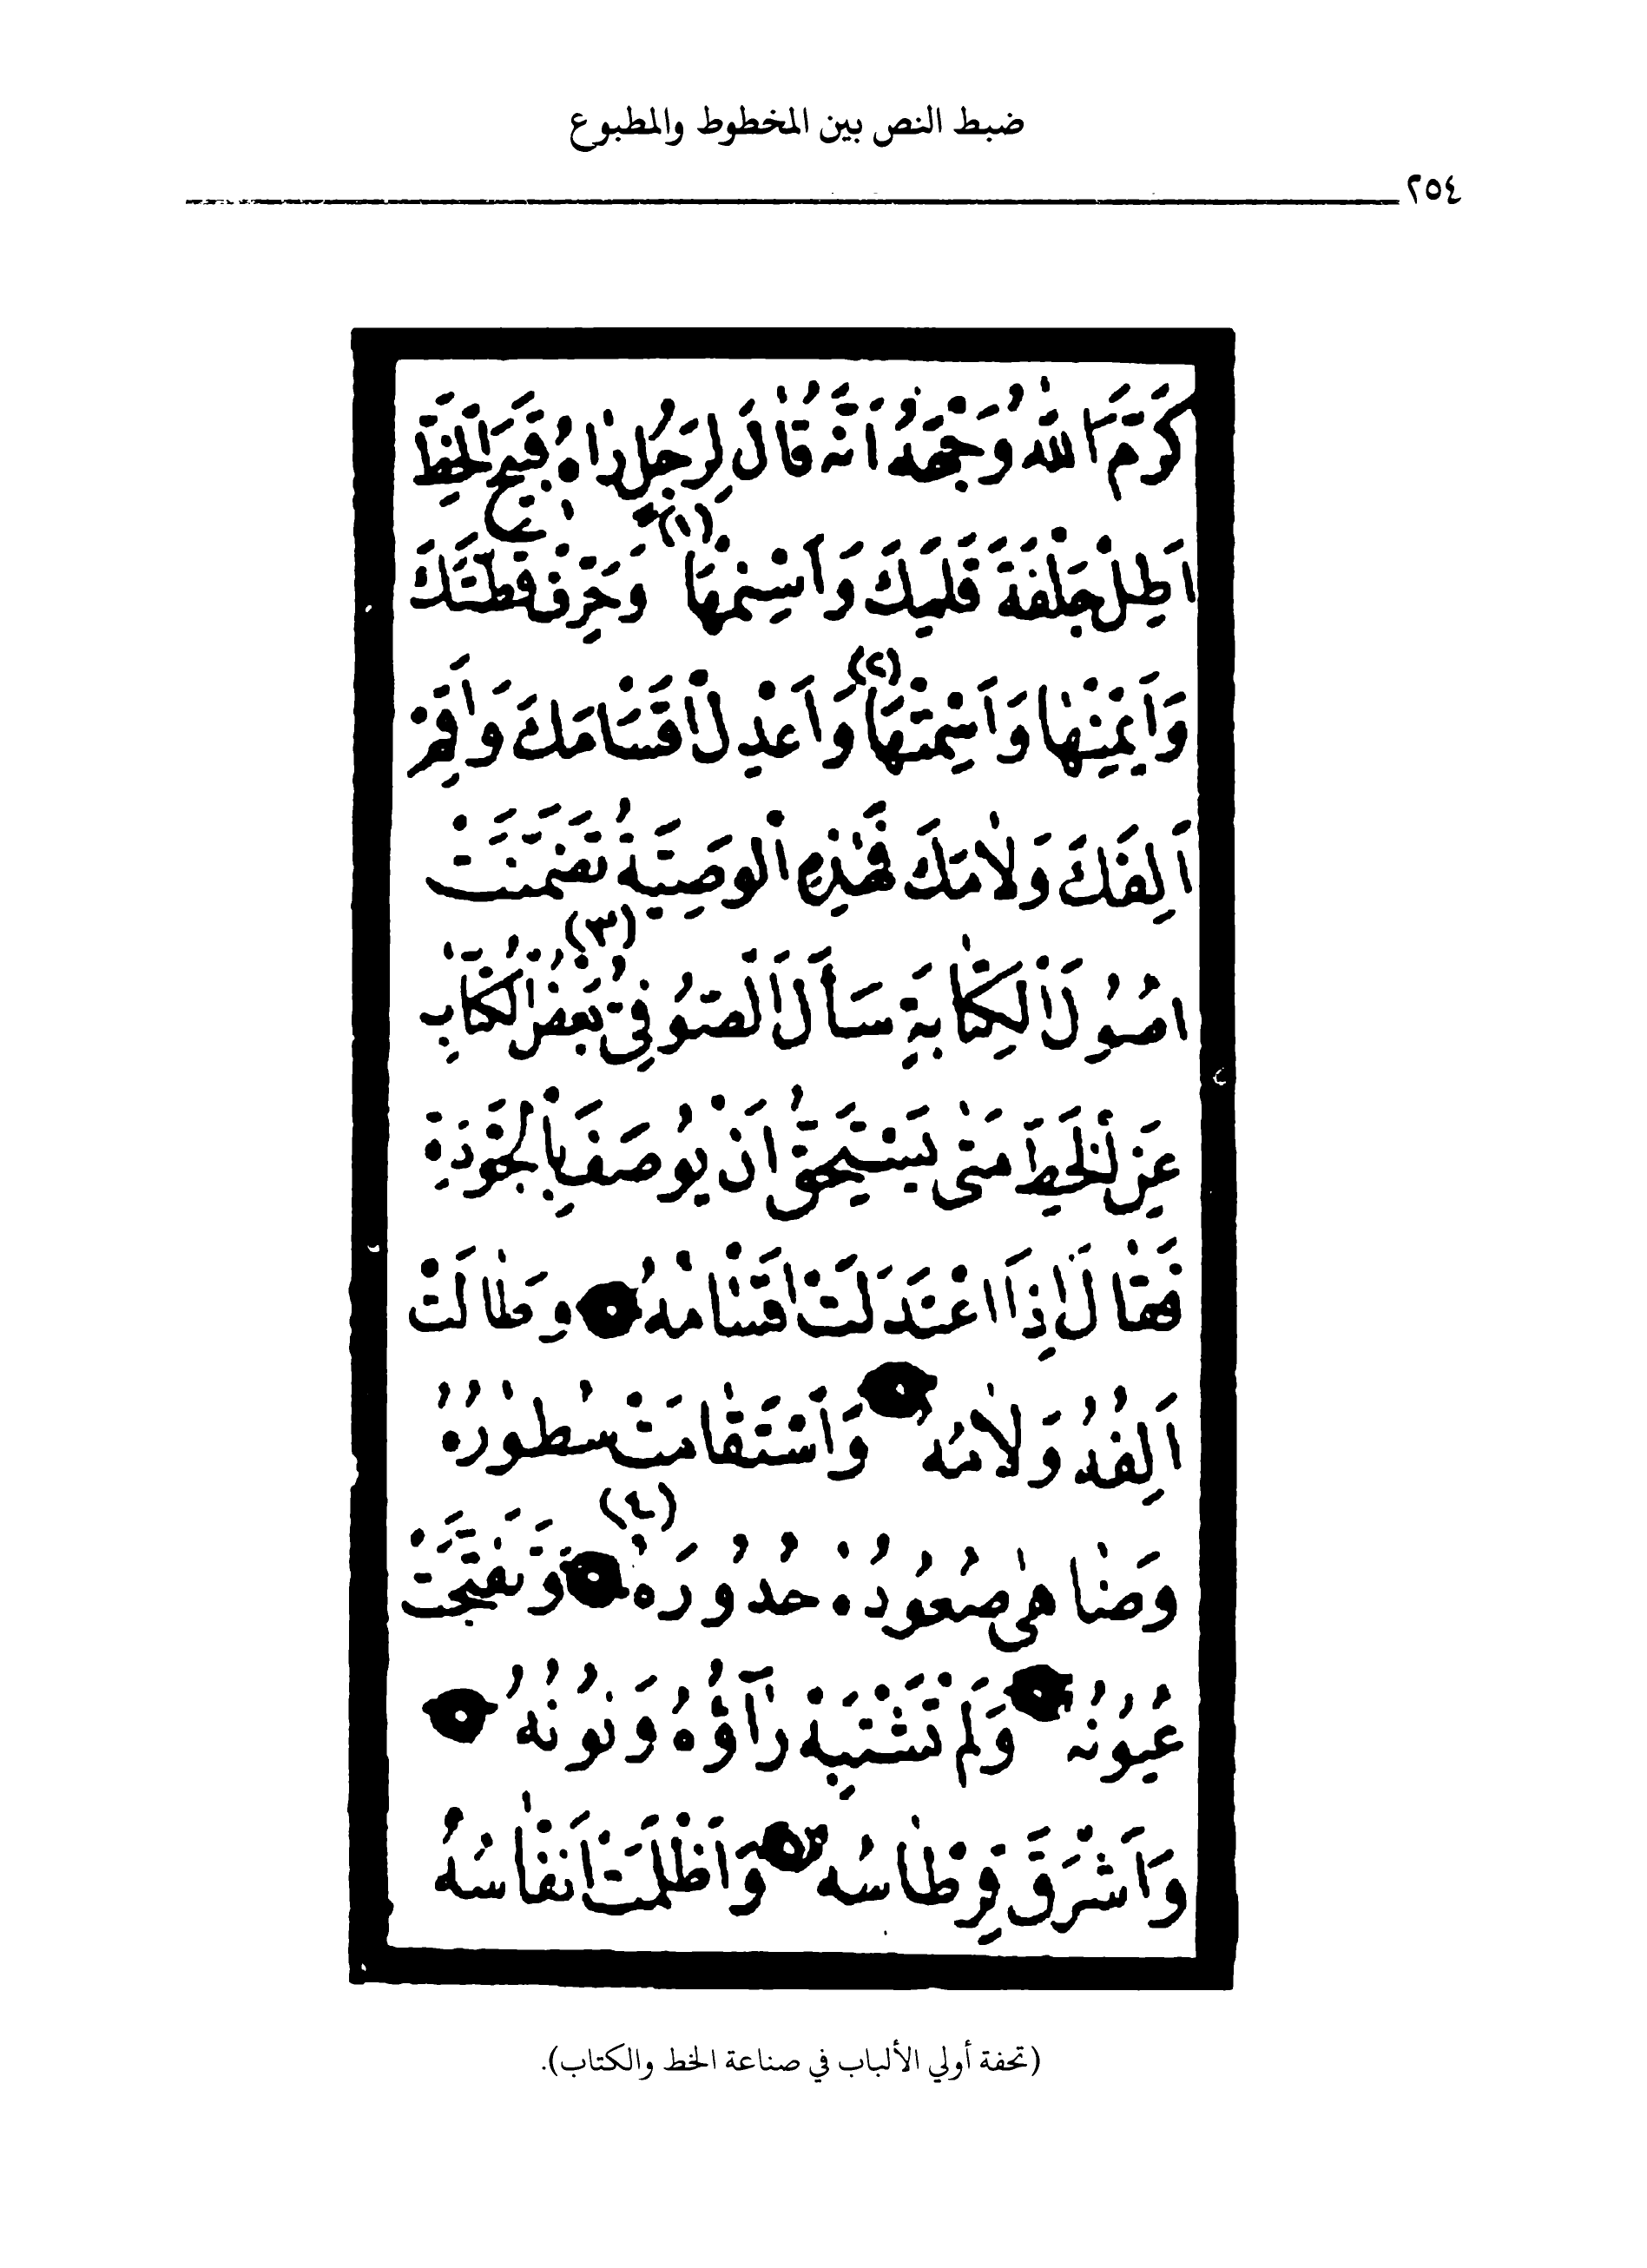 ضبط النص بين المخطوط والمطبوع
٢٥٤
كَرَّمَ اللهُ وَجْهَهُ أَنَّهُ قَالَ لِرَجُلٍ رَاهُ قَبِيحَ الْخَطِّ
اَطِلْ جَلْفَةَ قَلَمِكَ وَاَسْمِنْهَا (١) وَحَرِّفْ قَطَّتَكَ
وَاَيْمِنْهَا وَاَسْمِتْهَا (٢) وَاَعْدِلْ اَقْسَامَكَ وَاَقِمْ
اَلِفَكَ وَلَامَكَ فَهٰذِهِ الْوَصِيَّةُ تَضَمَّنَتْ
اُصُولَ الْكِتَابَةِ سَأَلَ الصُّوفِيُّ (٣) بَعْضُ الْكُتَّابِ
عَنِ الْخَطِّ مَتٰى يَسْتَحِقُّ اَنْ يُوصَفَ بِالْجَوْدَةِ
فَقَالَ اِذَا اعْتَدَلَتْ اَقْسَامُهُ وَطَالَتْ
اَلِفُهُ وَلَامُهُ وَاَسْتَقَامَتْ سُطُورُهُ
وَضَاهٰى صُعُودُهُ حُدُورَهُ (٤) وَتَفَتَّحَتْ
عُيُونُهُ وَلَمْ تَشْتَبِهْ رَآؤُهُ وَنُونُهُ
وَاَشْرَقَ قِرْطَاسُهُ وَاَظْلَمَتْ اَنْقَاسُهُ
(تحفة أولي الألباب في صناعة الخط والكتاب).